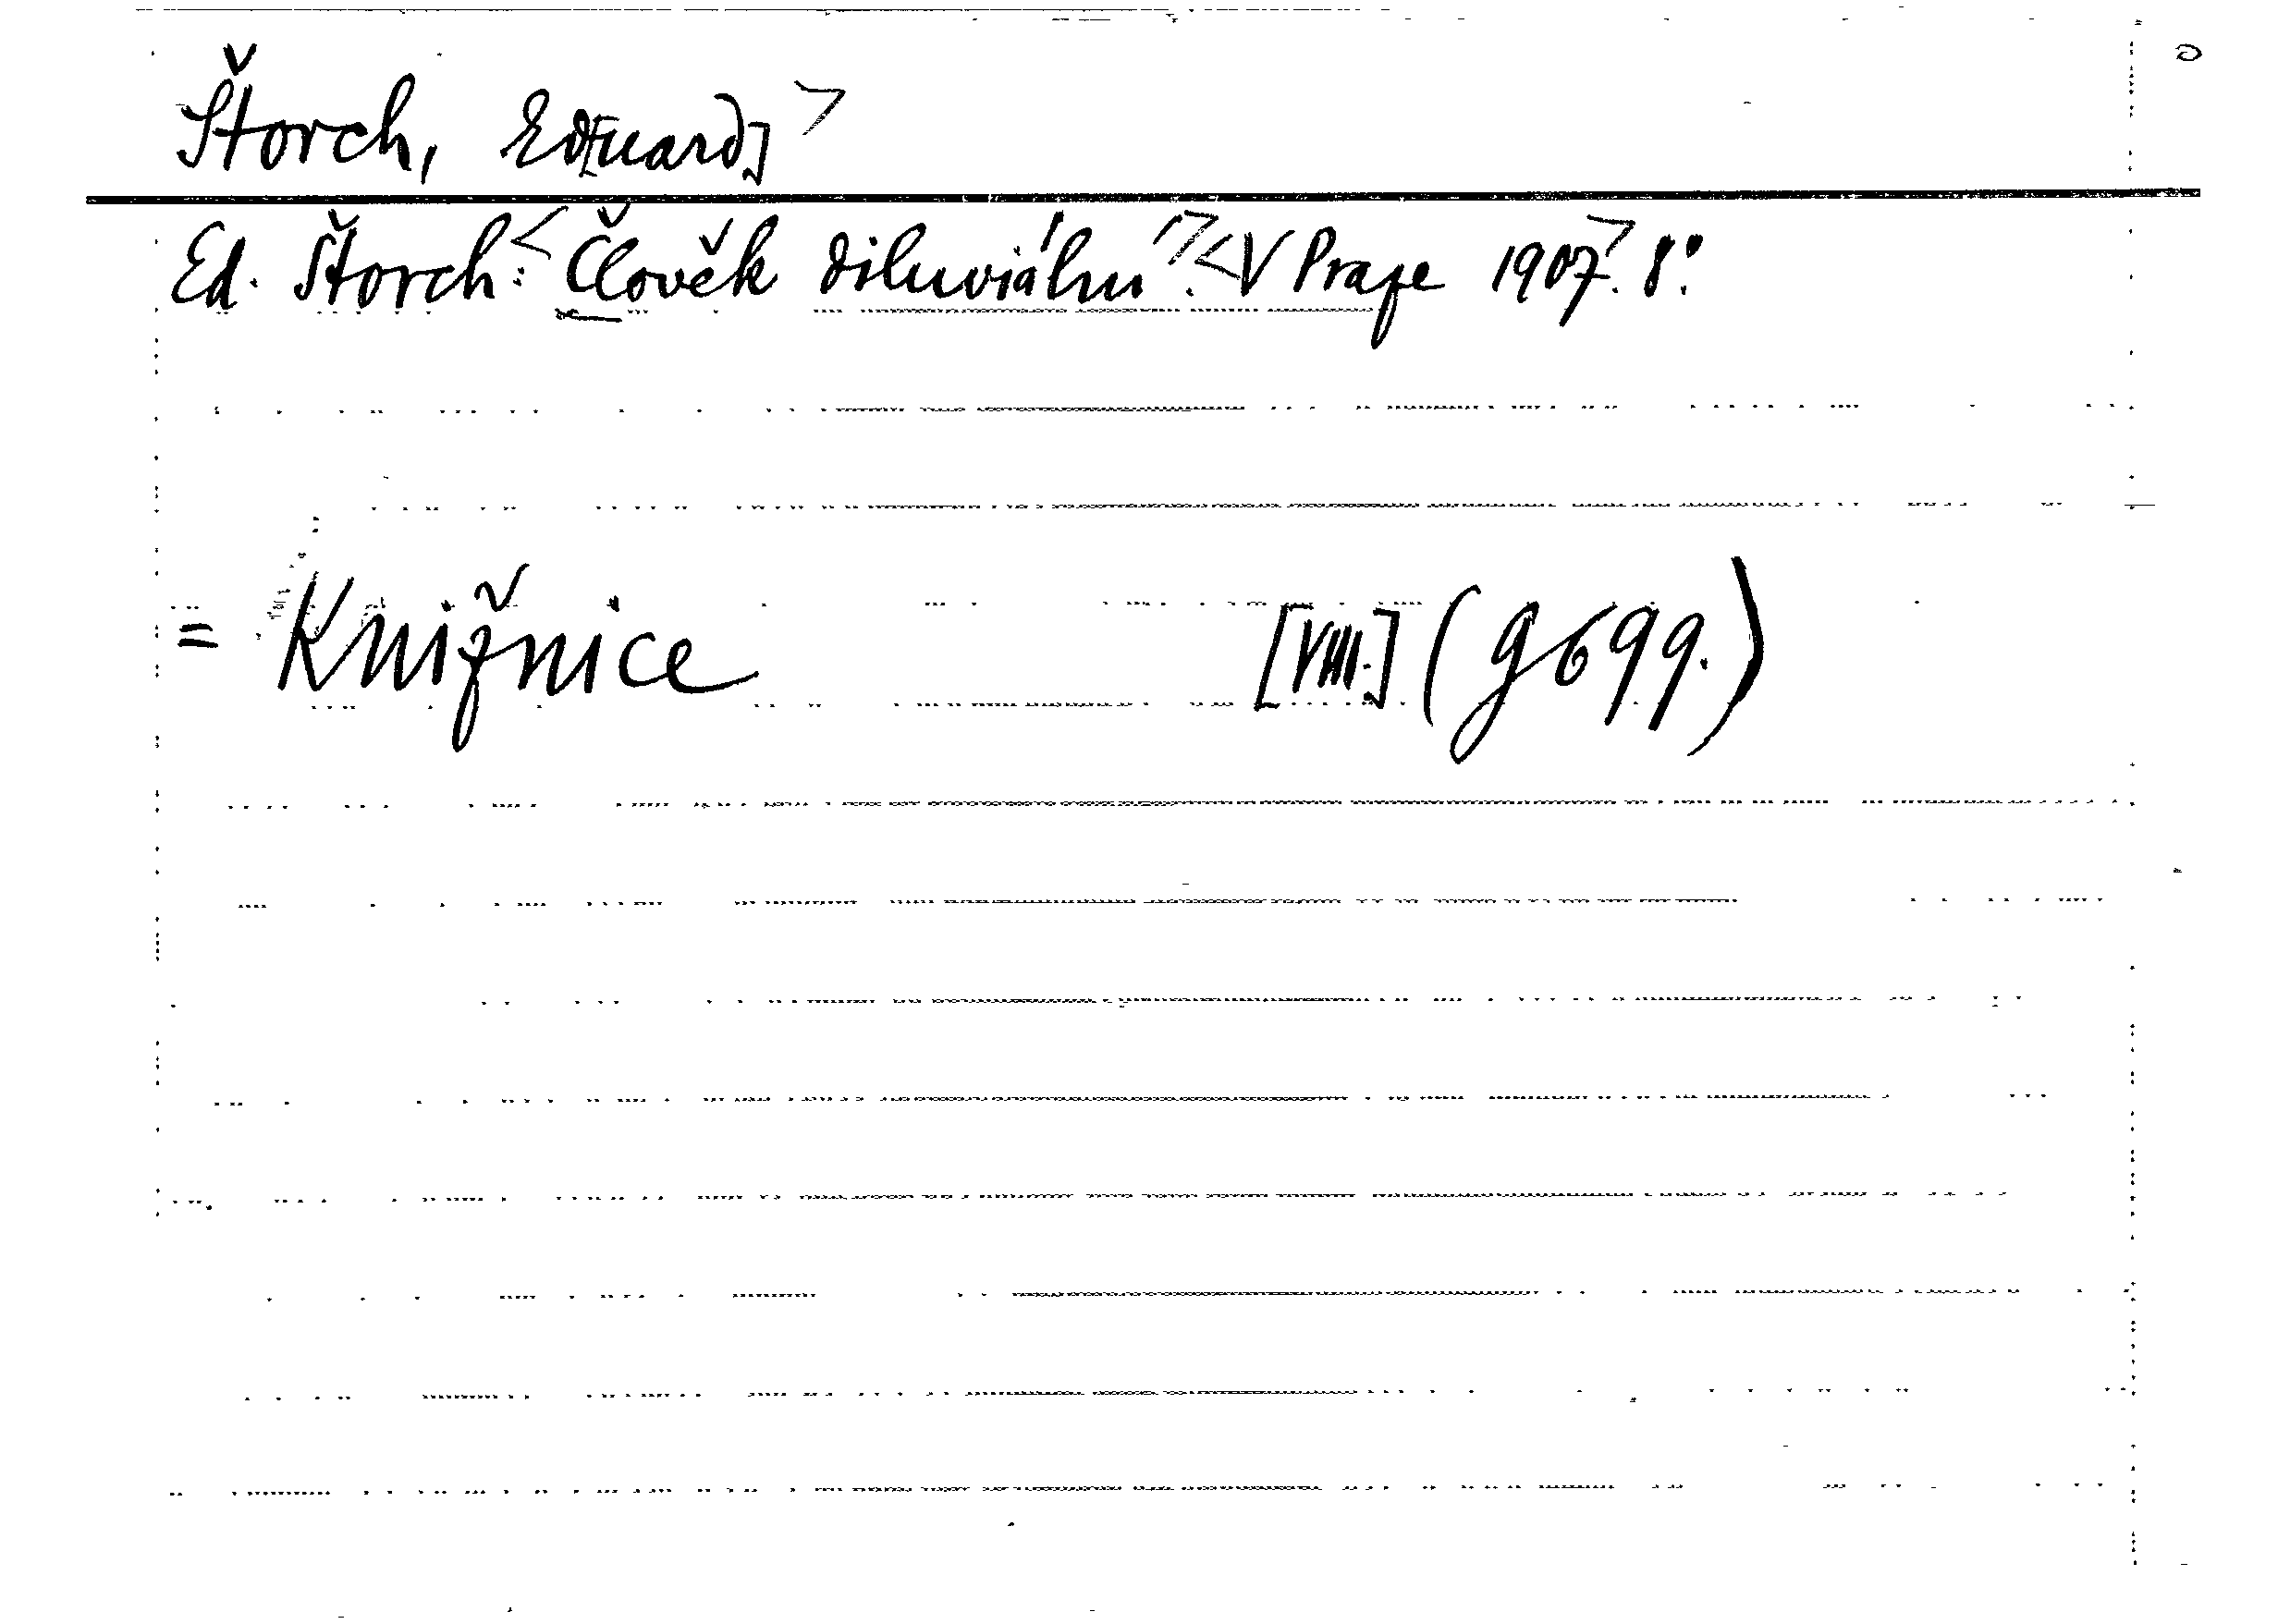 Štorch, Ed[uard]>
Ed. Štorch:< Člověk diluviální.><V Praze 1907>. 8°.
= Knižnice [VIII.] (g699.)